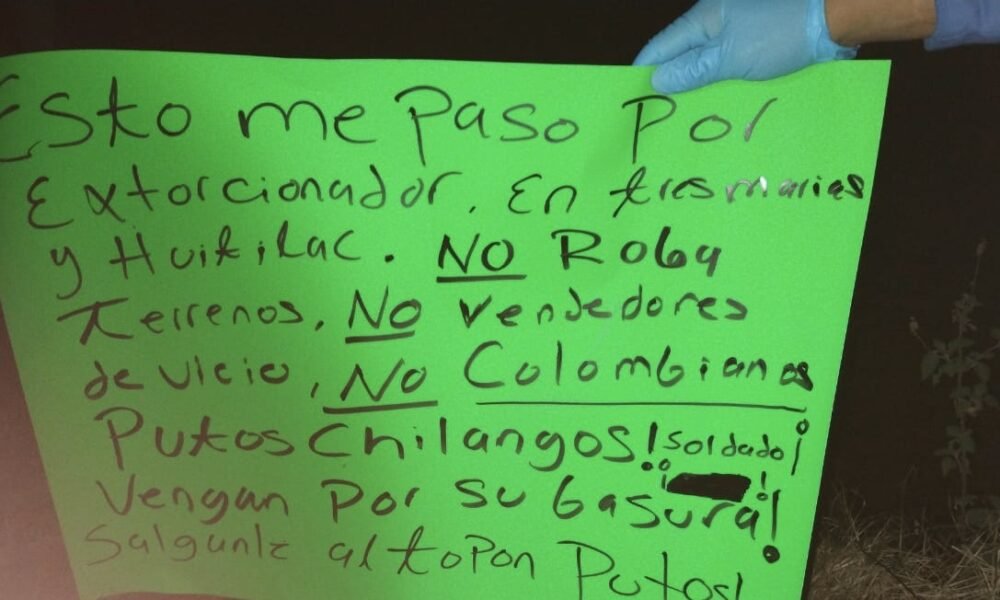 Esto me Paso Por
Extorcionador. En tresmarias
y Huitilac. NO Roba
terrenos, NO Vendedores
de vicio, NO Colombianos
Putos Chilangos! soldado¡
Vengan Por su basura!
Salganle al topon Putos!